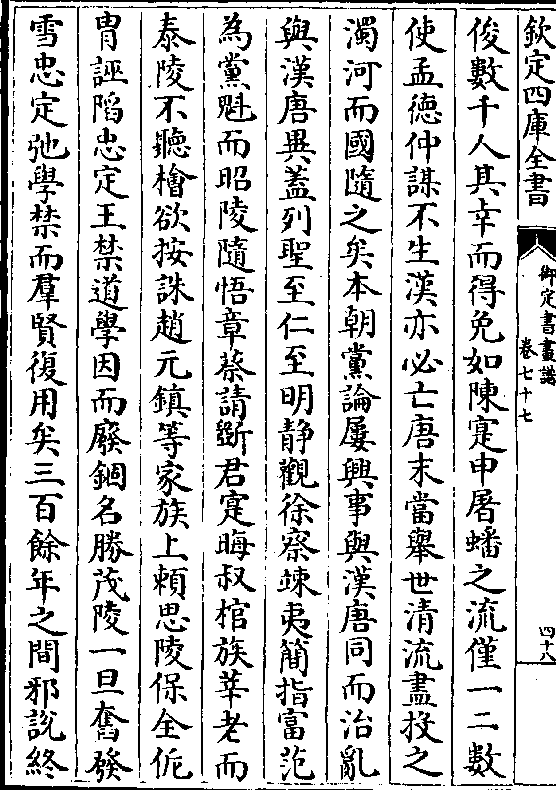 欽定四庫全書
御定書畫譜
卷七十七
四十八
俊數千人其幸而得免如陳寔申屠蟠之流僅一二數
使孟德仲謀不生漢亦必亡唐末當舉世清流盡投之
濁河而國隨之矣本朝黨論屢興事與漢唐同而治亂
與漢唐異蓋列聖至仁至明静觀徐察竦夷簡指富范
為黨魁而昭陵隨悟章蔡請斵君寔晦叔棺族莘老而
泰陵不聽檜欲按誅趙元鎮等家族上賴思陵保全侂
胄誣陷忠定王禁道學因而廢錮名勝茂陵一旦奮發
雪忠定弛學禁而羣賢復用矣三百餘年之間邪說終